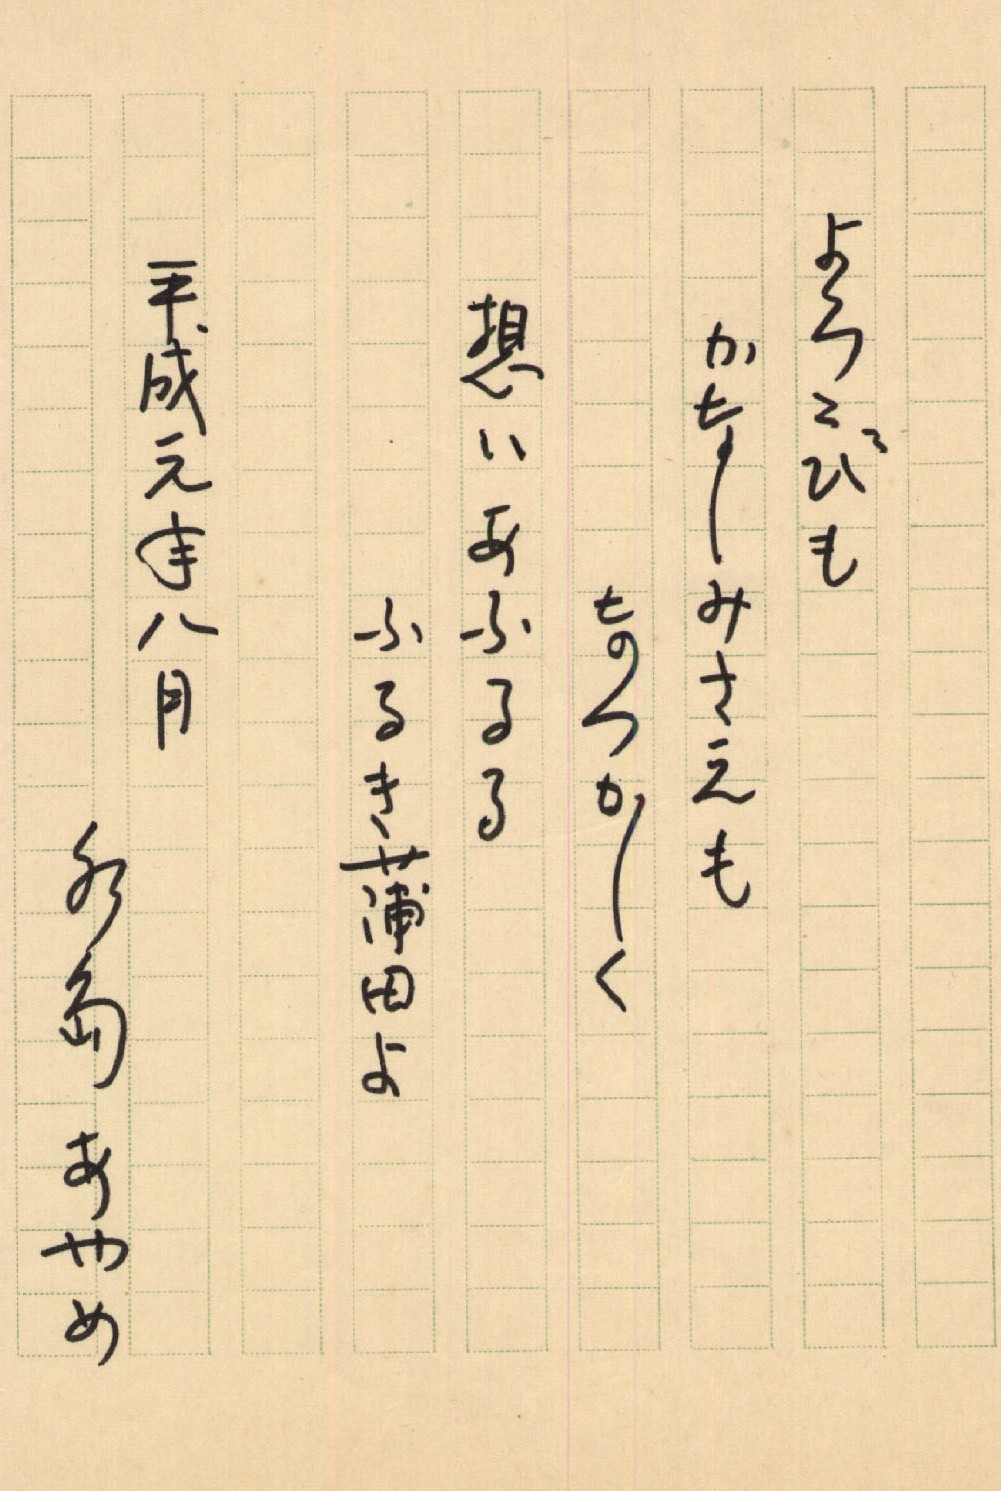 よろこびも
かなしみさえも
なつかしく
想いあふるる
ふるき蒲田よ
平成元年八月
水島あやめ